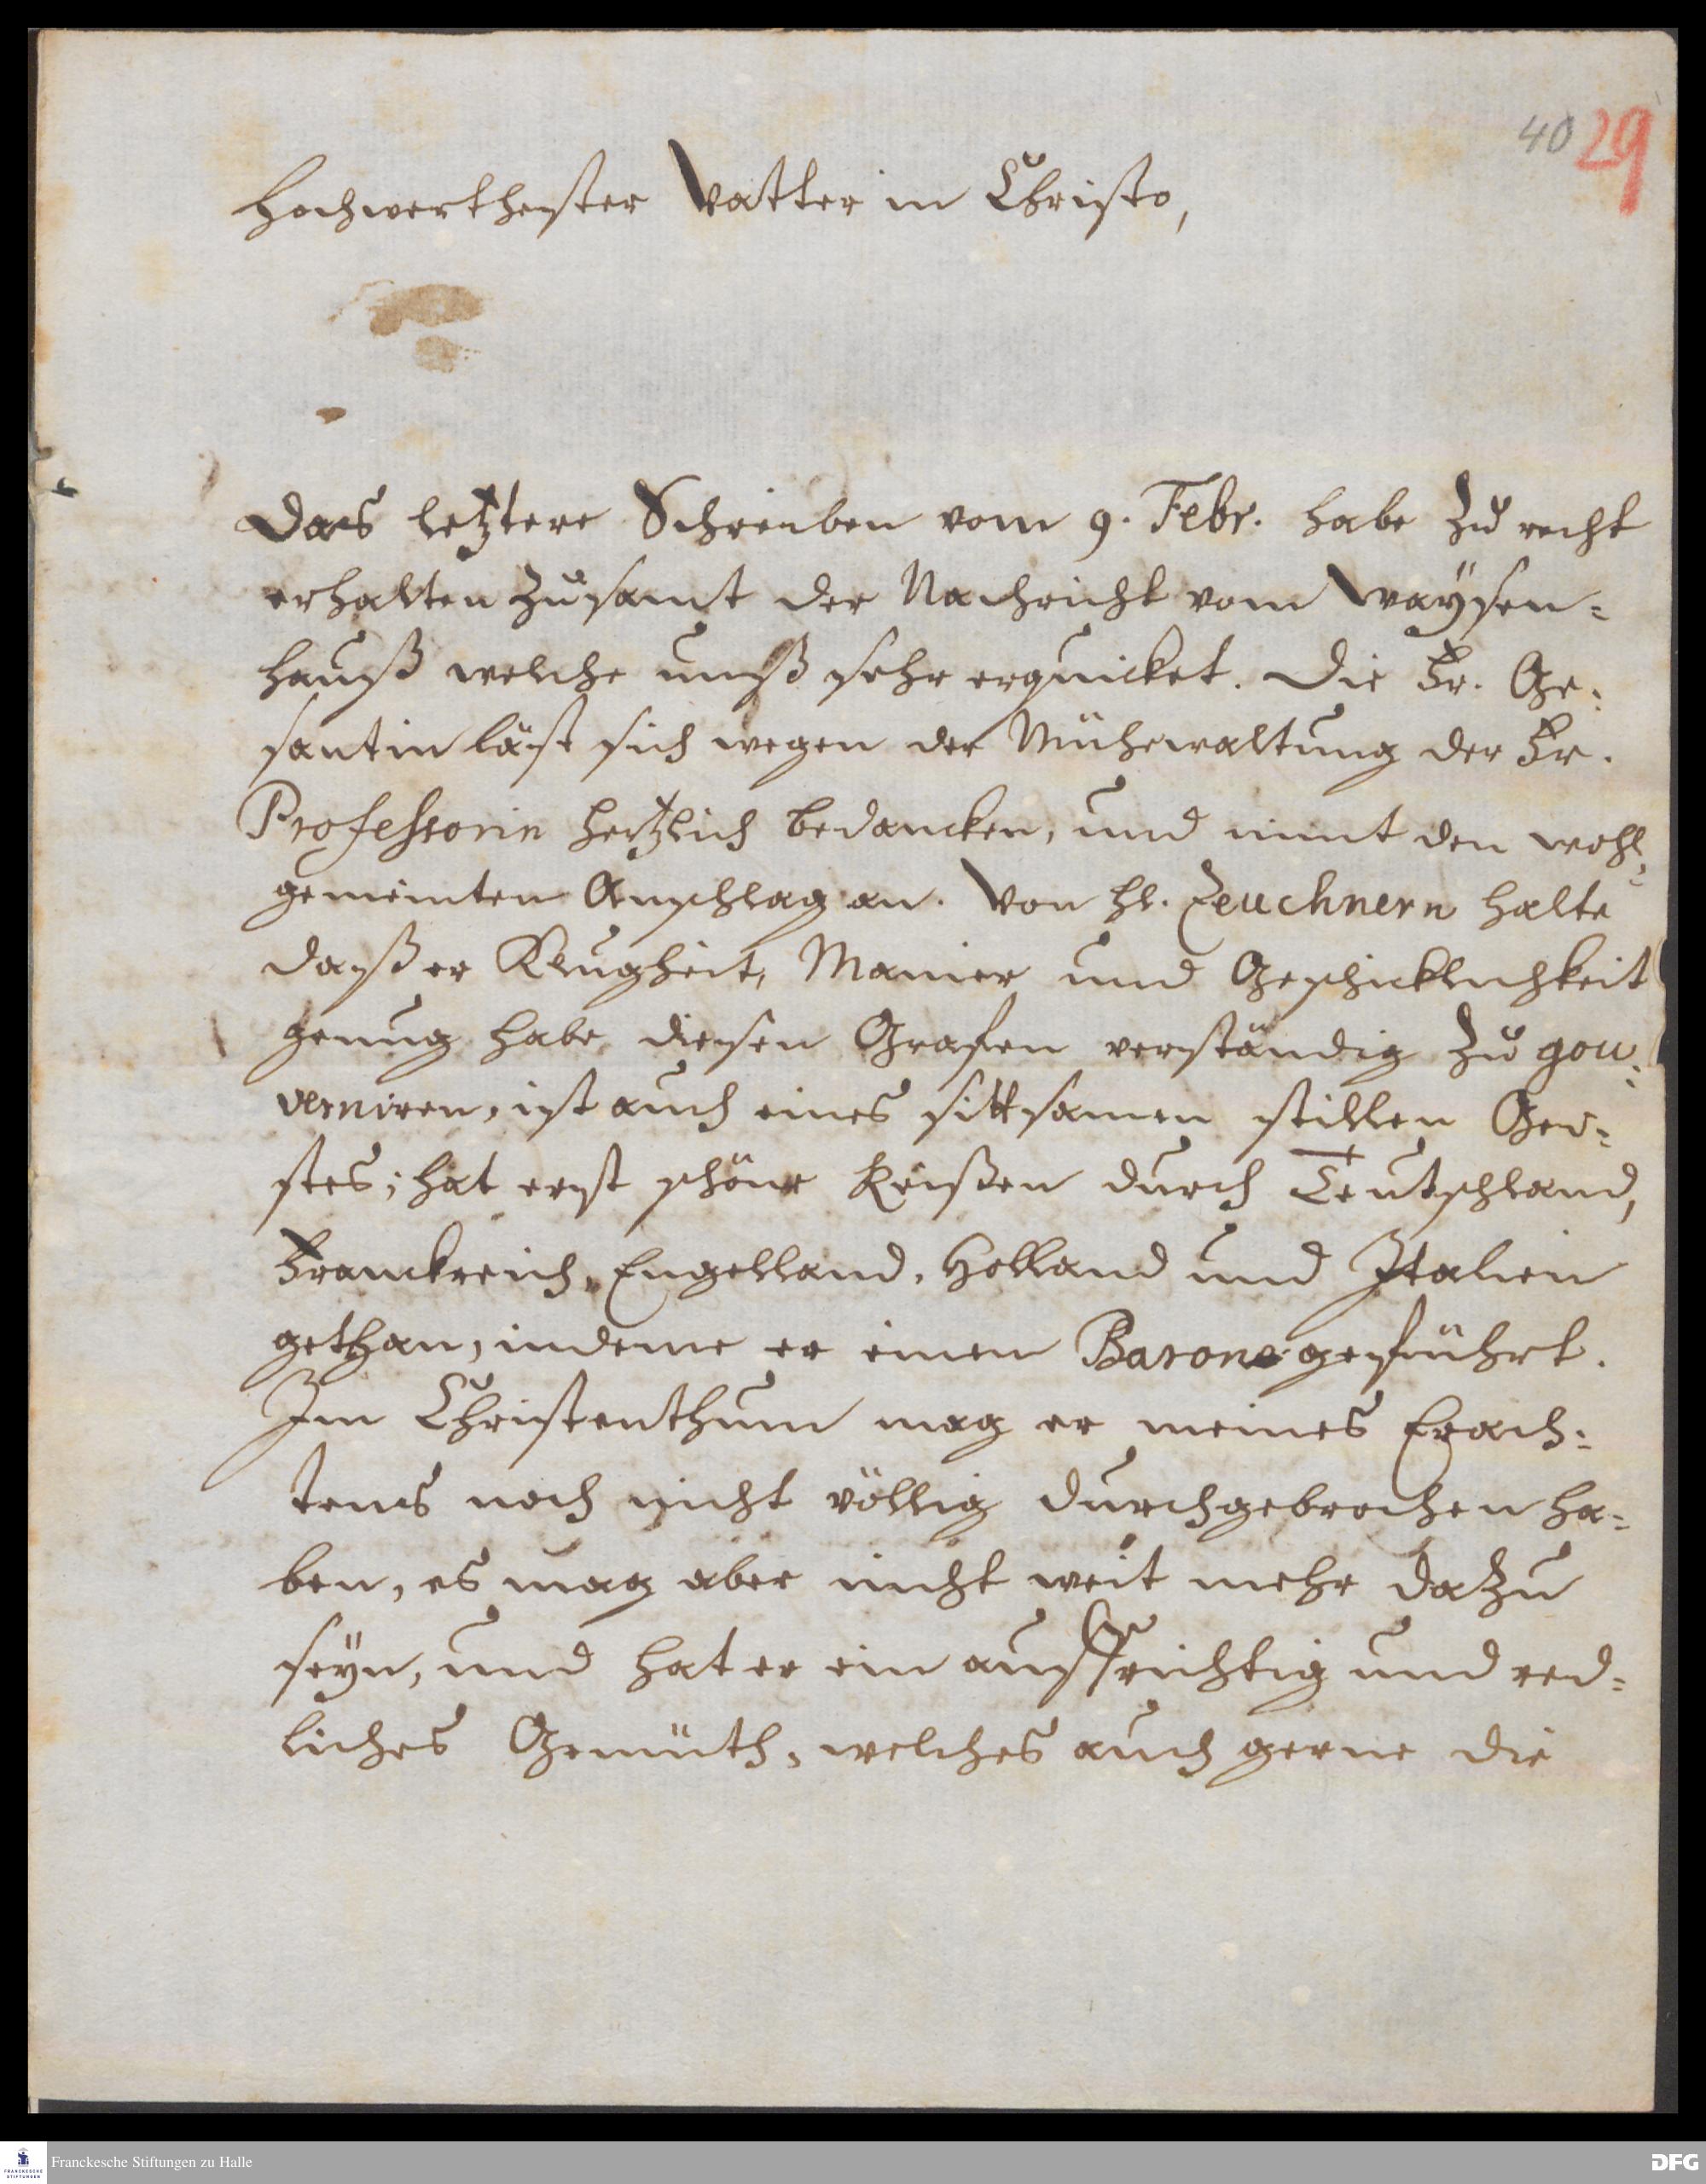 40 29
Hochwerthester Vatter in Christo,
Das letztere Schreiben vom 9. Febr. habe zu recht
erhalten zusamt der Nachricht vom Waÿsen=
hauß welche unß sehr erquicket. Die Fr. Ge=
santin läst sich wegen der Mühewaltung der Fr.
Professorin hertzlich bedancken, und nimt den wohl=
gemeinten Anschlag an. Von H. Zeuchnern halte
daß er Klugheit, Manier und Geschicklichkeit
genug habe diesen Grafen verständig zu gou=
verniren, ist auch eines sittsamen stillen Gei=
stes; hat erst schöne Reißen durch Teutschland,
Franckreich, Engelland, Holland und Italien
gethan, indeme er einen Baron geführt.
Im Christenthum mag er meines Erach=
tens noch nicht völlig durchgebrochen ha=
ben, es mag aber nicht weit mehr dazu
seÿn, und hat er ein auffrichtig und red=
liches Gemüth, welches auch gerne die
FRANCKESCHE STIFTUNGEN
Franckesche Stiftungen zu Halle
DFG